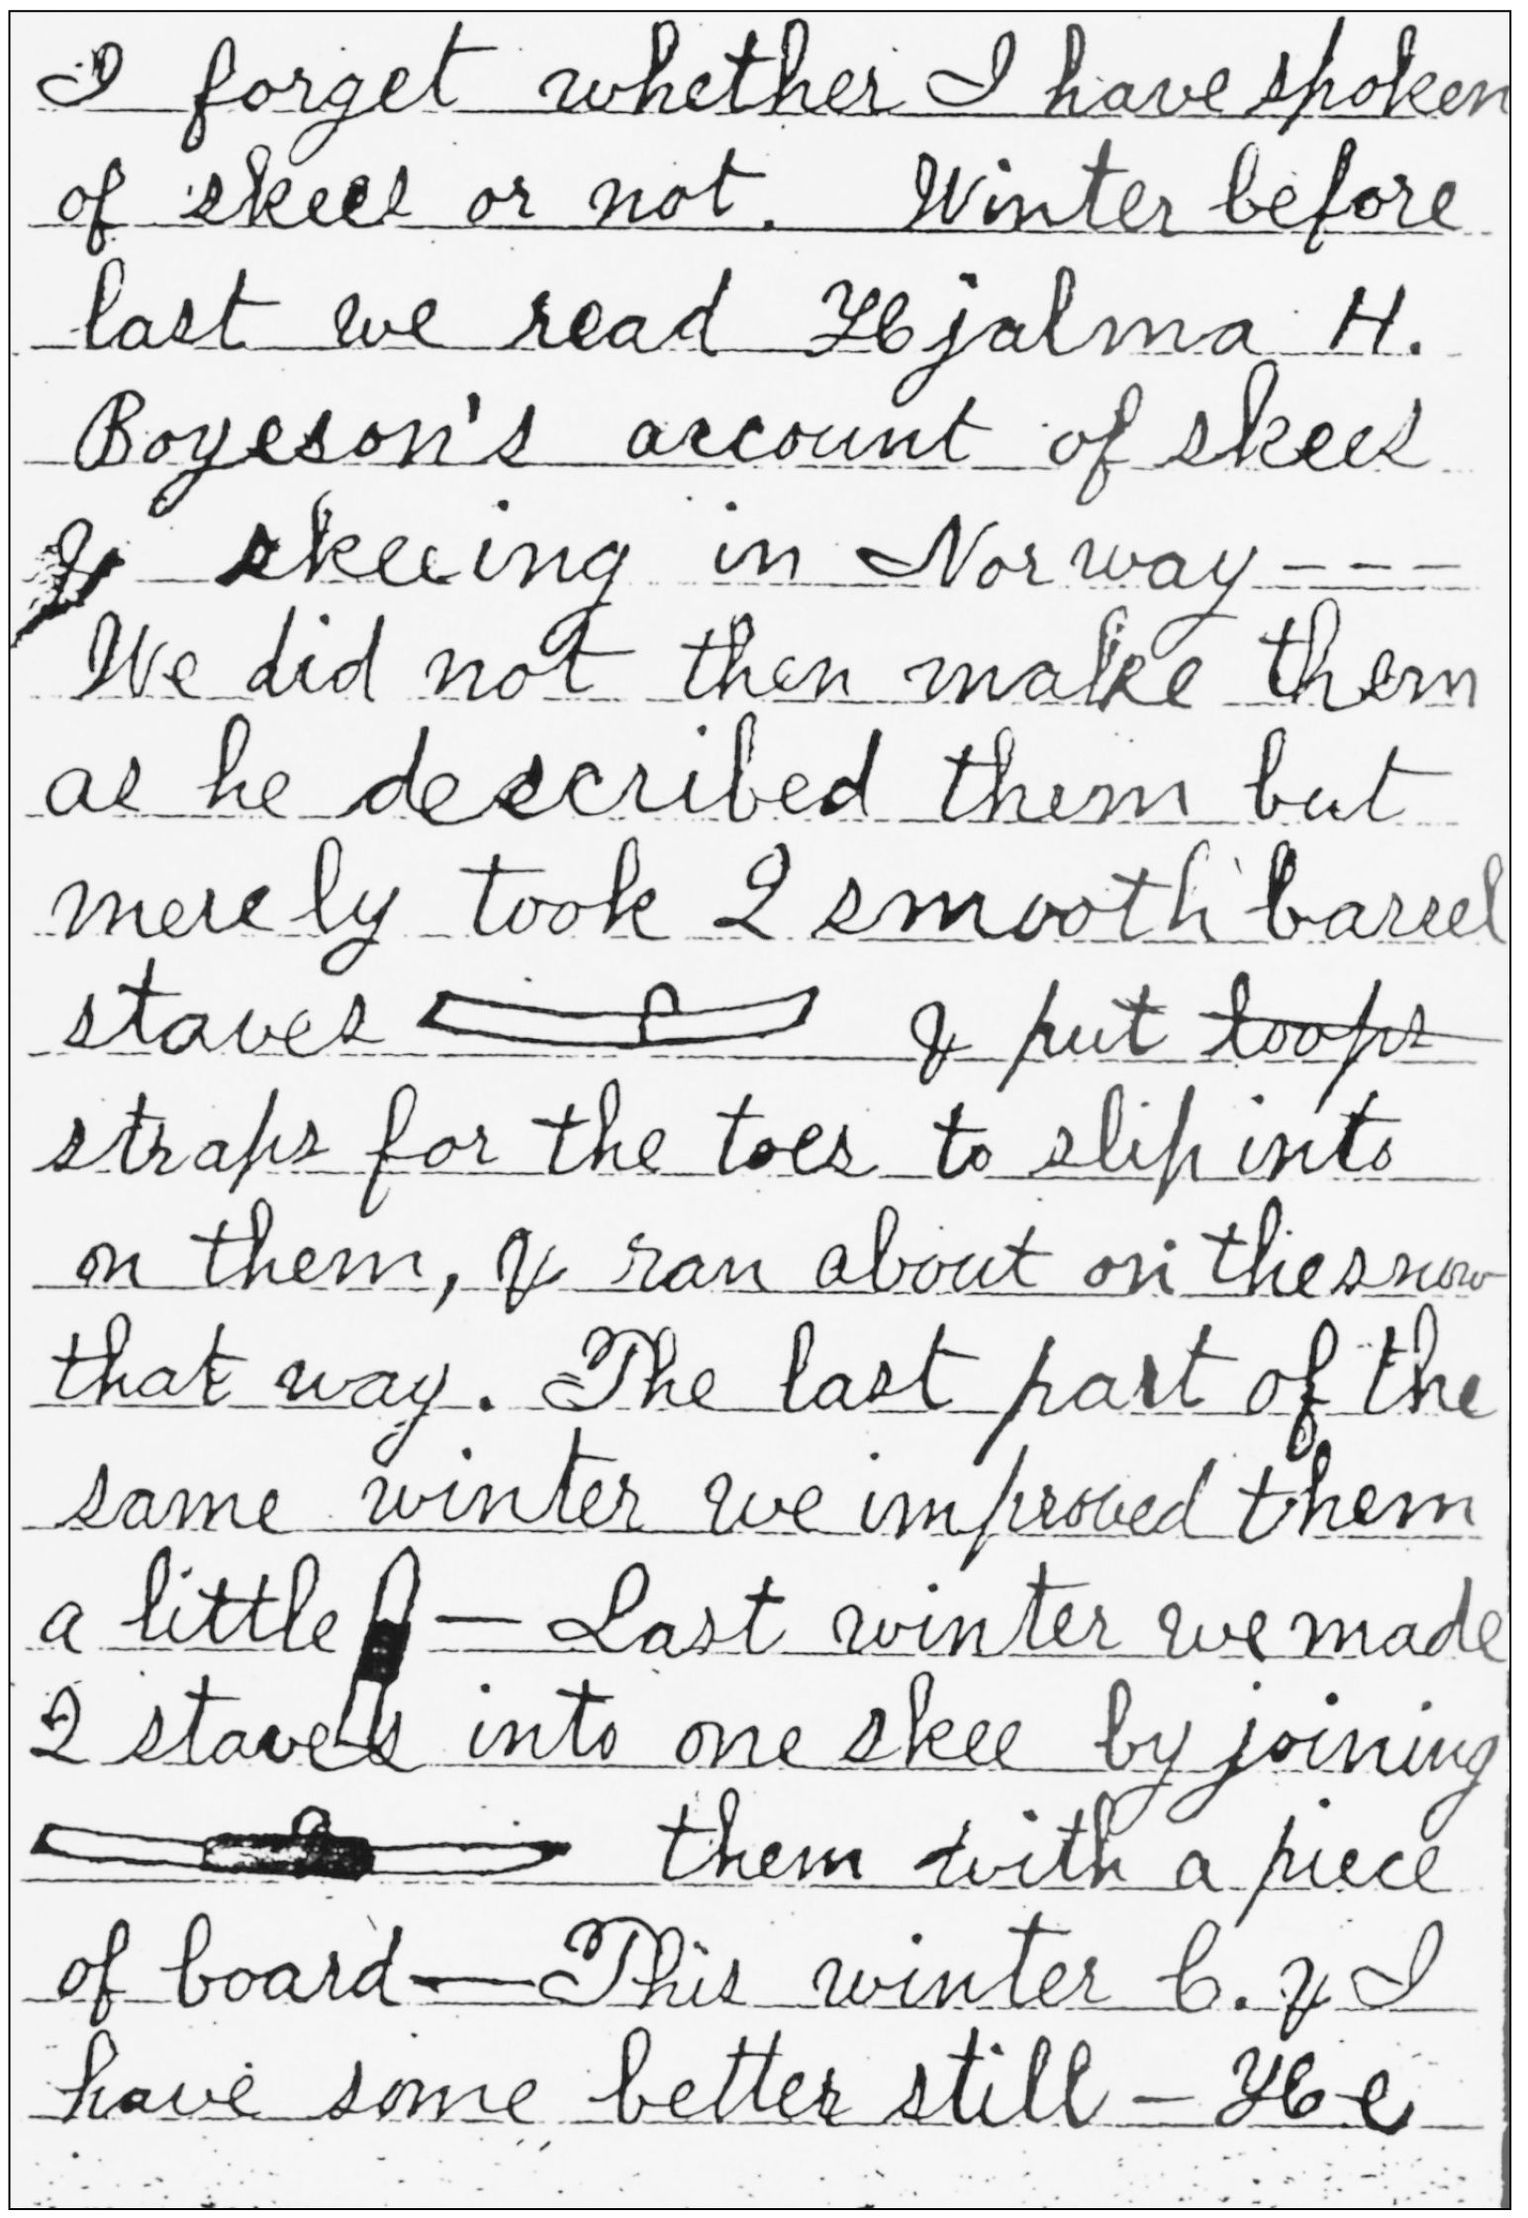 I forget whether I have spoken
of skees or not. Winter before
last we read Hjalma H.
Boyeson's account of skees
& skeeing in Norway ---
We did not then make them
as he described them but
merely took 2 smooth barrel
staves & put loops
straps for the toes to slip into
on them, & ran about on the snow
that way. The last part of the
same winter we improved them
a little — Last winter we made
2 staves into one skee by joining
them with a piece
of board — This winter C. & I
have some better still — He